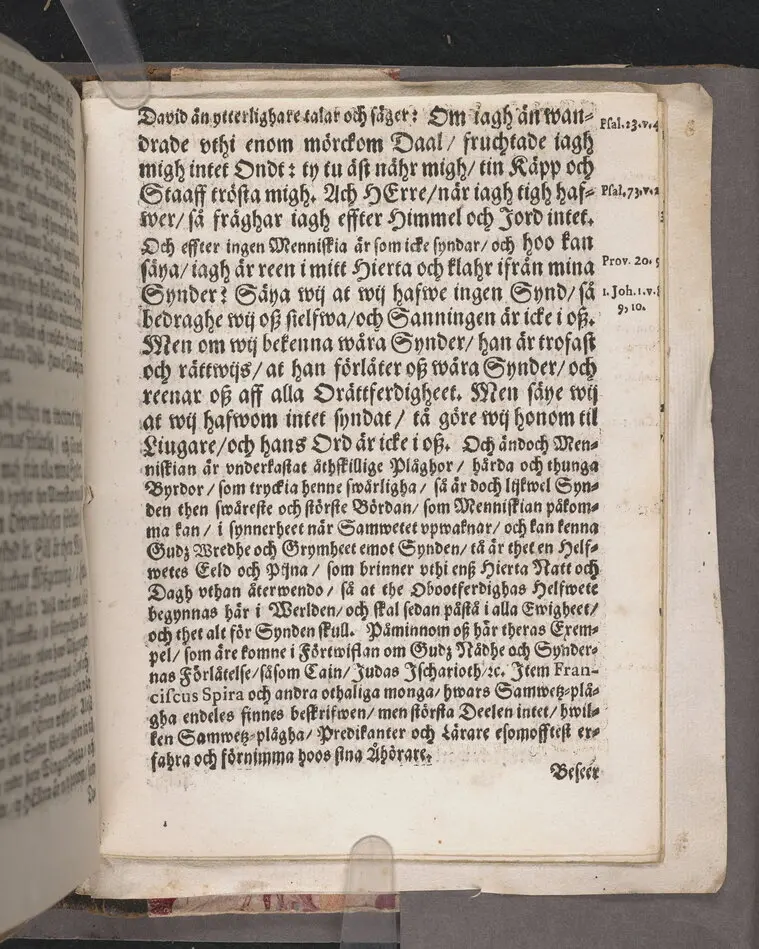 David än ytterlighare talar och säger: Om iagh än wan-
drade vthi enom mörckom Daal/ fruchtade iagh
migh intet Ondt: ty tu äst nähr migh/ tin Käpp och
Staaff trösta migh. Ach HErre/ när iagh tigh haf-
wer/ så fräghar iagh effter Himmel och Jord intet.
Och effter ingen Menniskia är som icke syndar/ och hoo kan
säya/ iagh är reen i mitt Hierta och klahr ifrån mina
Synder? Säya wij at wij hafwe ingen Synd/ så
bedraghe wij oß sielfwa/ och Sanningen är icke i oß.
Men om wij bekenna wåra Synder/ han är trofast
och rättwijs/ at han förläter oß wåra Synder/ och
reenar oß aff alla Orättferdigheet. Men säye wij
at wij hafwom intet syndat/ tå göre wij honom til
Liugare/ och hans Ord är icke i oß. Och ändoch Men-
niskian är vnderkastat åthskillige Plåghor/ hårda och thunga
Byrdor/ som tryckia henne swårligha/ så är doch lijkwel Syn-
den then swåreste och störste Bördan/ som Menniskian påkom-
ma kan/ i synnerheet när Samwetet vpwaknar/ och kan kenna
Gudz Wredhe och Grymheet emot Synden/ tå är thet en Helf-
wetes Eeld och Pijna/ som brinner vthi enß Hierta Natt och
Dagh vthan återwendo/ så at the Obootferdighas Helfwete
begynnas här i Werlden/ och skal sedan påstå i alla Ewigheet/
och thet alt för Synden skull. Påminnom oß här theras Exem-
pel/ som äre komne i Förtwiflan om Gudz Nådhe och Synder-
nas Förlåtelse/ såsom Cain/ Judas Ischarioth/ ꝛc. Item Fran-
ciscus Spira och andra othaliga monga/ hwars Samwetz-plå-
gha endeles finnes beskrifwen/ men största Deelen intet/ hwil-
ken Samwetz-plågha/ Predikanter och Lärare esomofftest er-
fahra och förnimma hoos sina Åhörare.
Beseer
Psal. 23. v. 4
Psal. 73. v. 2
Prov. 20. 9
1. Joh. 1. v. 8
9, 10.